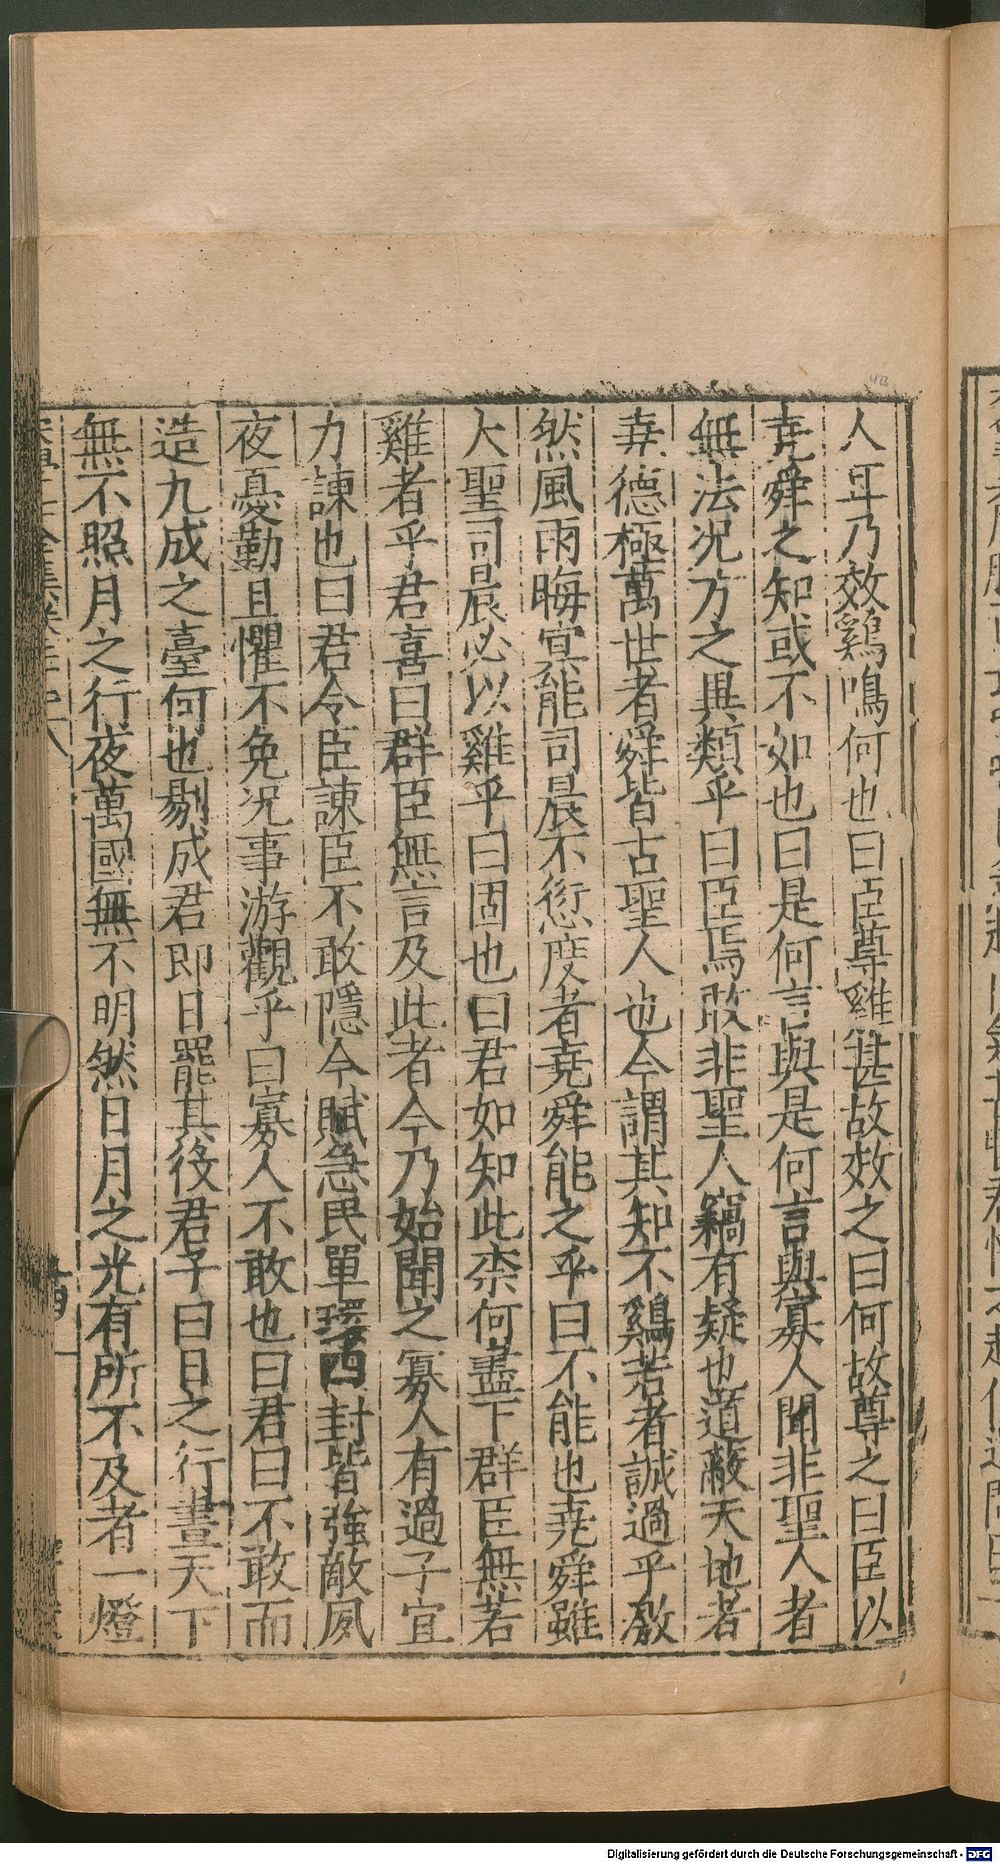 人耳乃效鷄鳴何也曰臣尊雞甚故效之曰何故尊之曰臣以
堯舜之知或不如也曰是何言與是何言與寡人聞非聖人者
無法况方之異類乎曰臣焉敢非聖人竊有疑也道蔽天地者
堯德極萬世者舜皆古聖人也今謂其知不鷄若者誠過乎敖
然風雨晦冥能司晨不愆度者堯舜能之乎曰不能也堯舜雖
大聖司晨必以雞乎曰固也曰君如知此柰何盡下群臣無若
雞者乎君喜曰群臣無言及此者今乃始聞之寡人有過子宜
力諫也曰君令臣諫臣不敢隱今賦急民單環四封皆強敵夙
夜憂勤且懼不免况事游觀乎曰寡人不敢也曰君曰不敢而
造九成之臺何也剔成君即日罷其役君子曰日之行晝天下
無不照月之行夜萬國無不明然日月之光有所不及者一燈
Digitalisierung gefördert durch die Deutsche Forschungsgemeinschaft - DFG